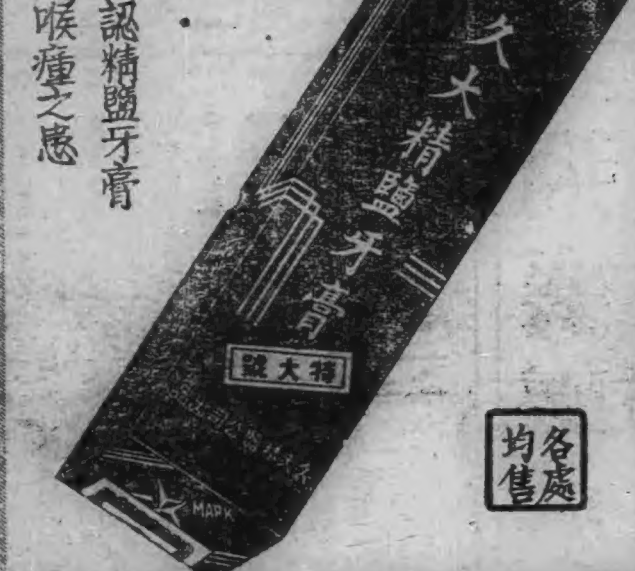 認精鹽牙膏
喉瘇之患
久大精鹽牙膏
特大號
MARK
各處
均售